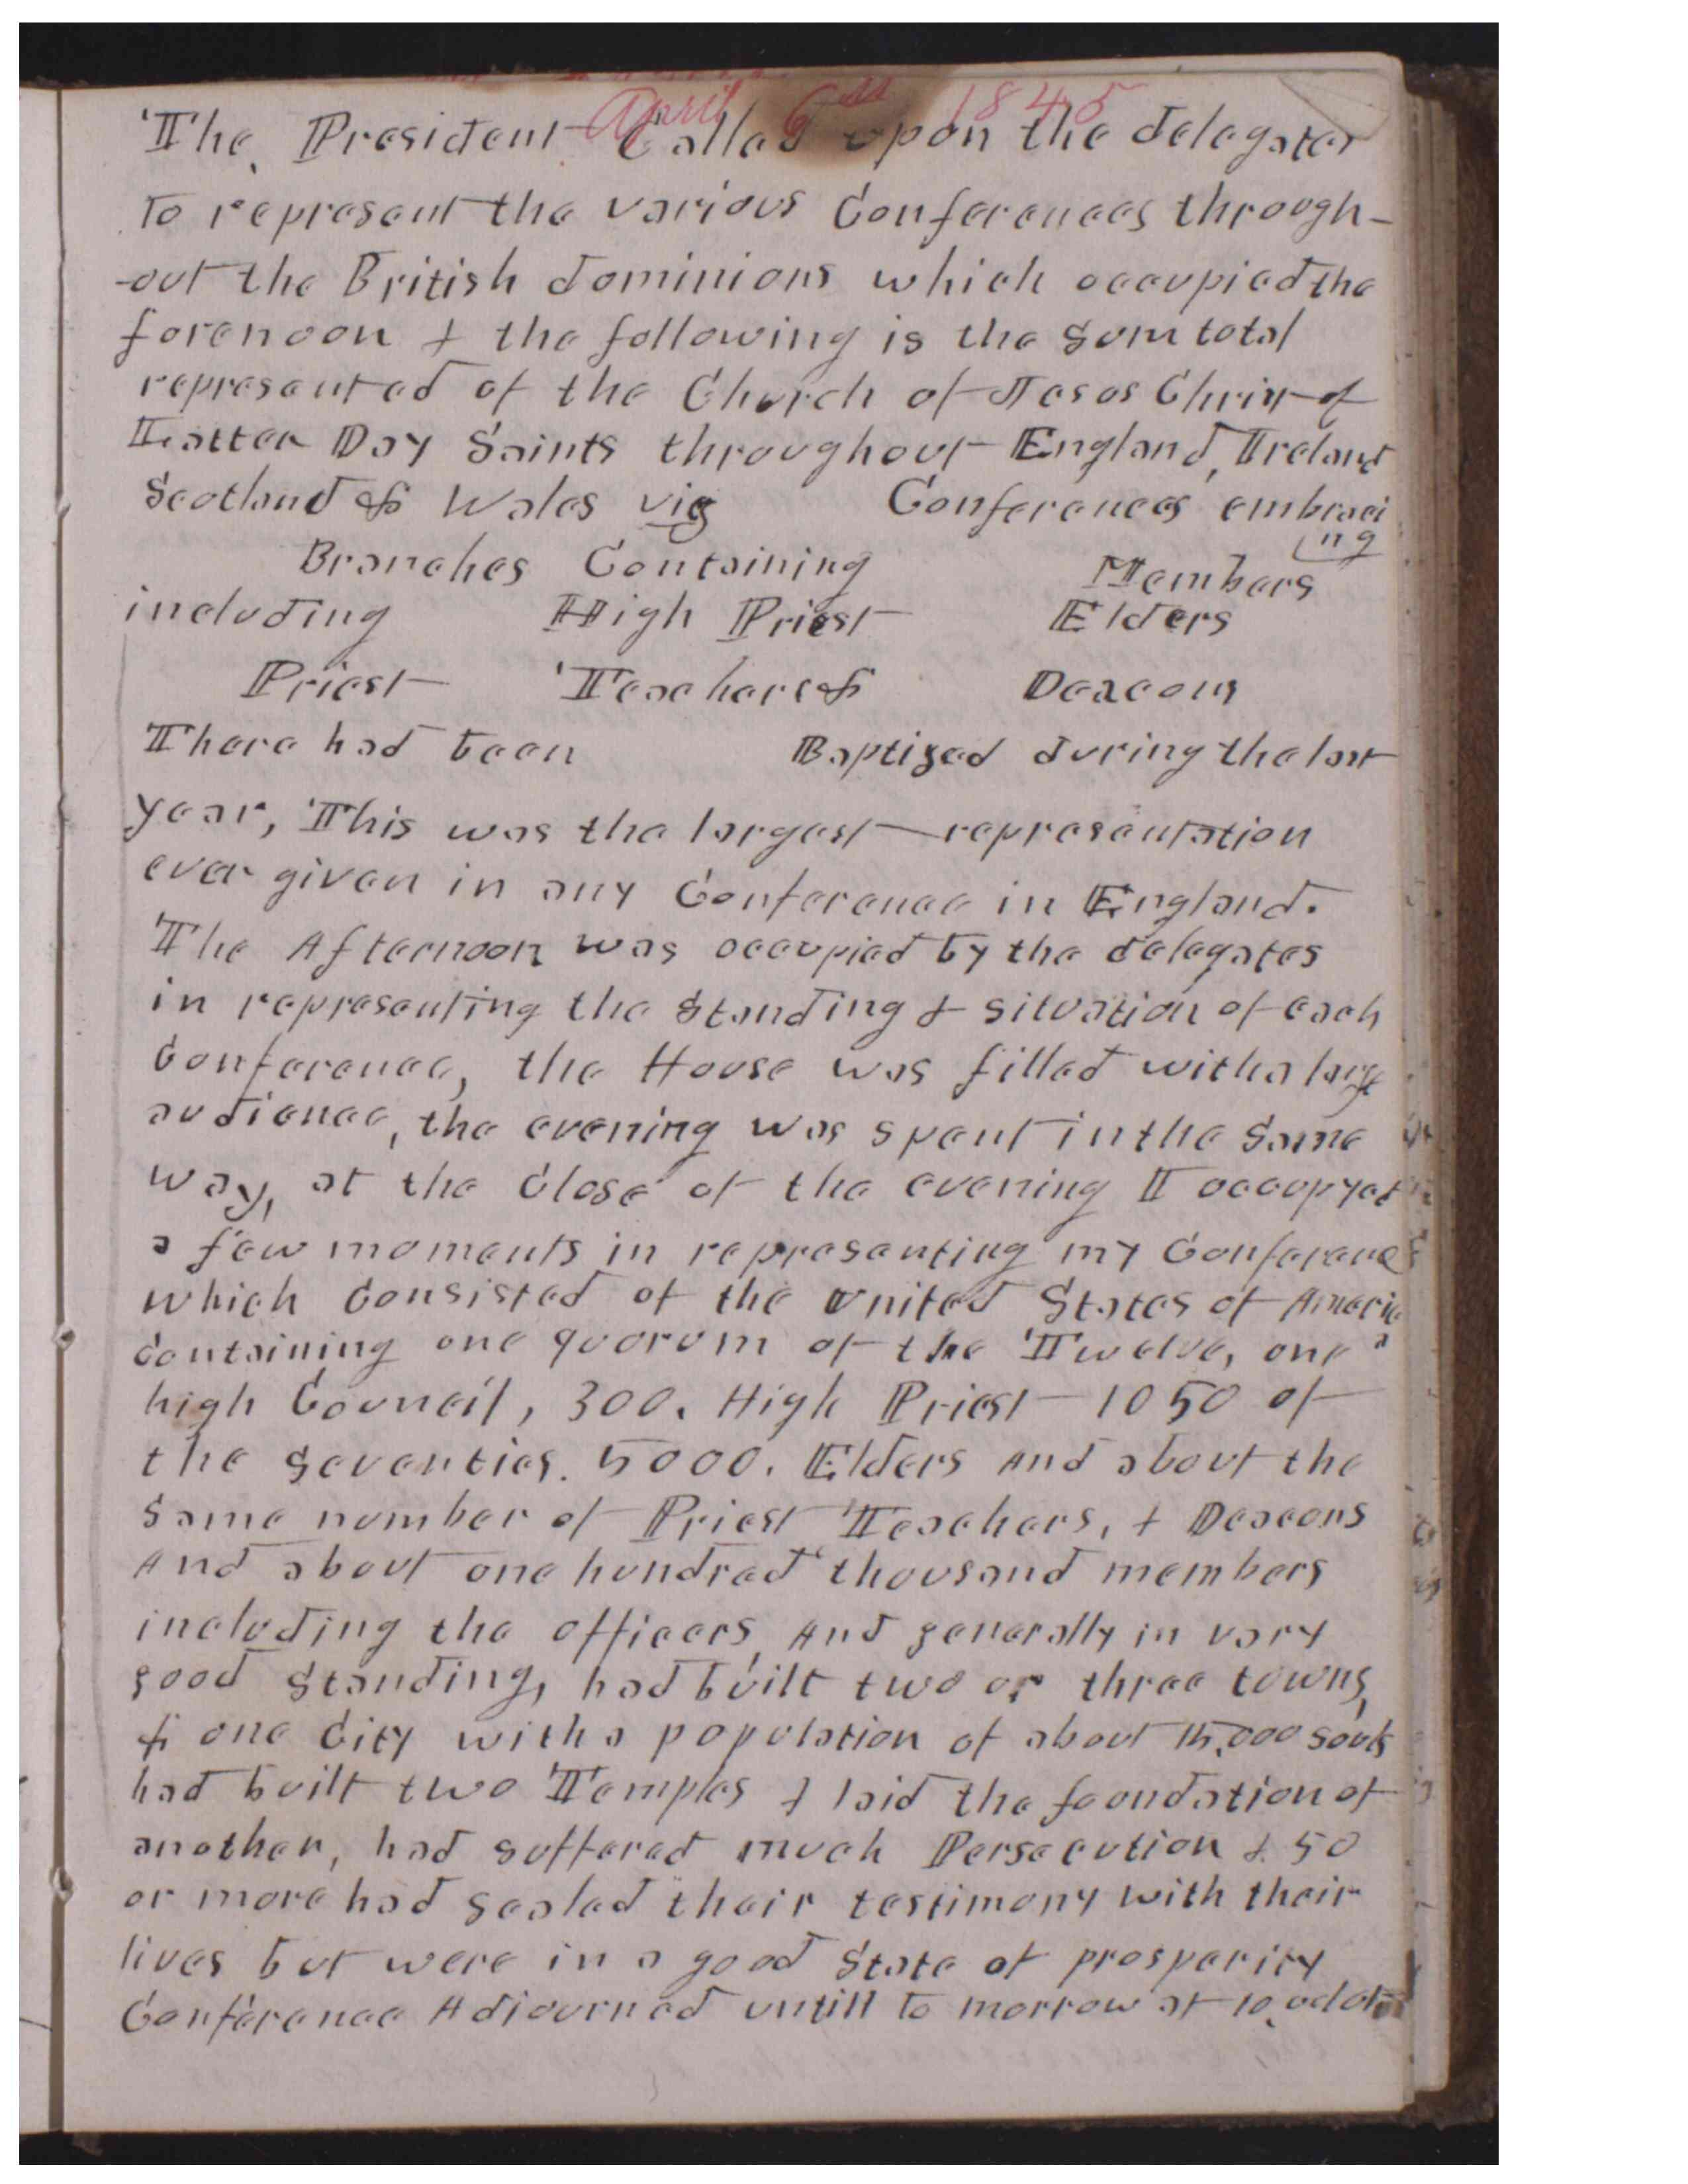 April 6th 1845
The President Called upon the delegates
to represent the various Conferences through-
-out the British dominions which occupied the
forenoon & the following is the sum total
represented of the Church of Jesus Christ of
Latter Day Saints throughout England, Ireland
Scotland & Wales viz Conferences embraci
ng
Branches Containing Members
including High Priest Elders
Priest Teachers & Deacons
There had been Baptized during the last
year, This was the largest representation
ever given in any Conference in England.
The Afternoon was occupied by the delegates
in representing the standing & situation of each
Conference, the House was filled with a large
audience, the evening was spent in the same
way, at the close of the evening I occupyed
a few moments in representing my Conference
which consisted of the United States of Americ
containing one quorum of the Twelve, one a
high Council, 300. High Priest 1050 of
the seventies. 5000. Elders and about the
same number of Priest Teachers, & Deacons
and about one hundred thousand members
including the officers, and generally in very
good standing, had built two or three towns,
& one City with a population of about 15,000 souls
had built two Temples & laid the foundation of
another, had suffered much Persecution & 50
or more had sealed their testimony with their
lives but were in a good state of prosperity
Conference Adjourned untill to morrow at 10